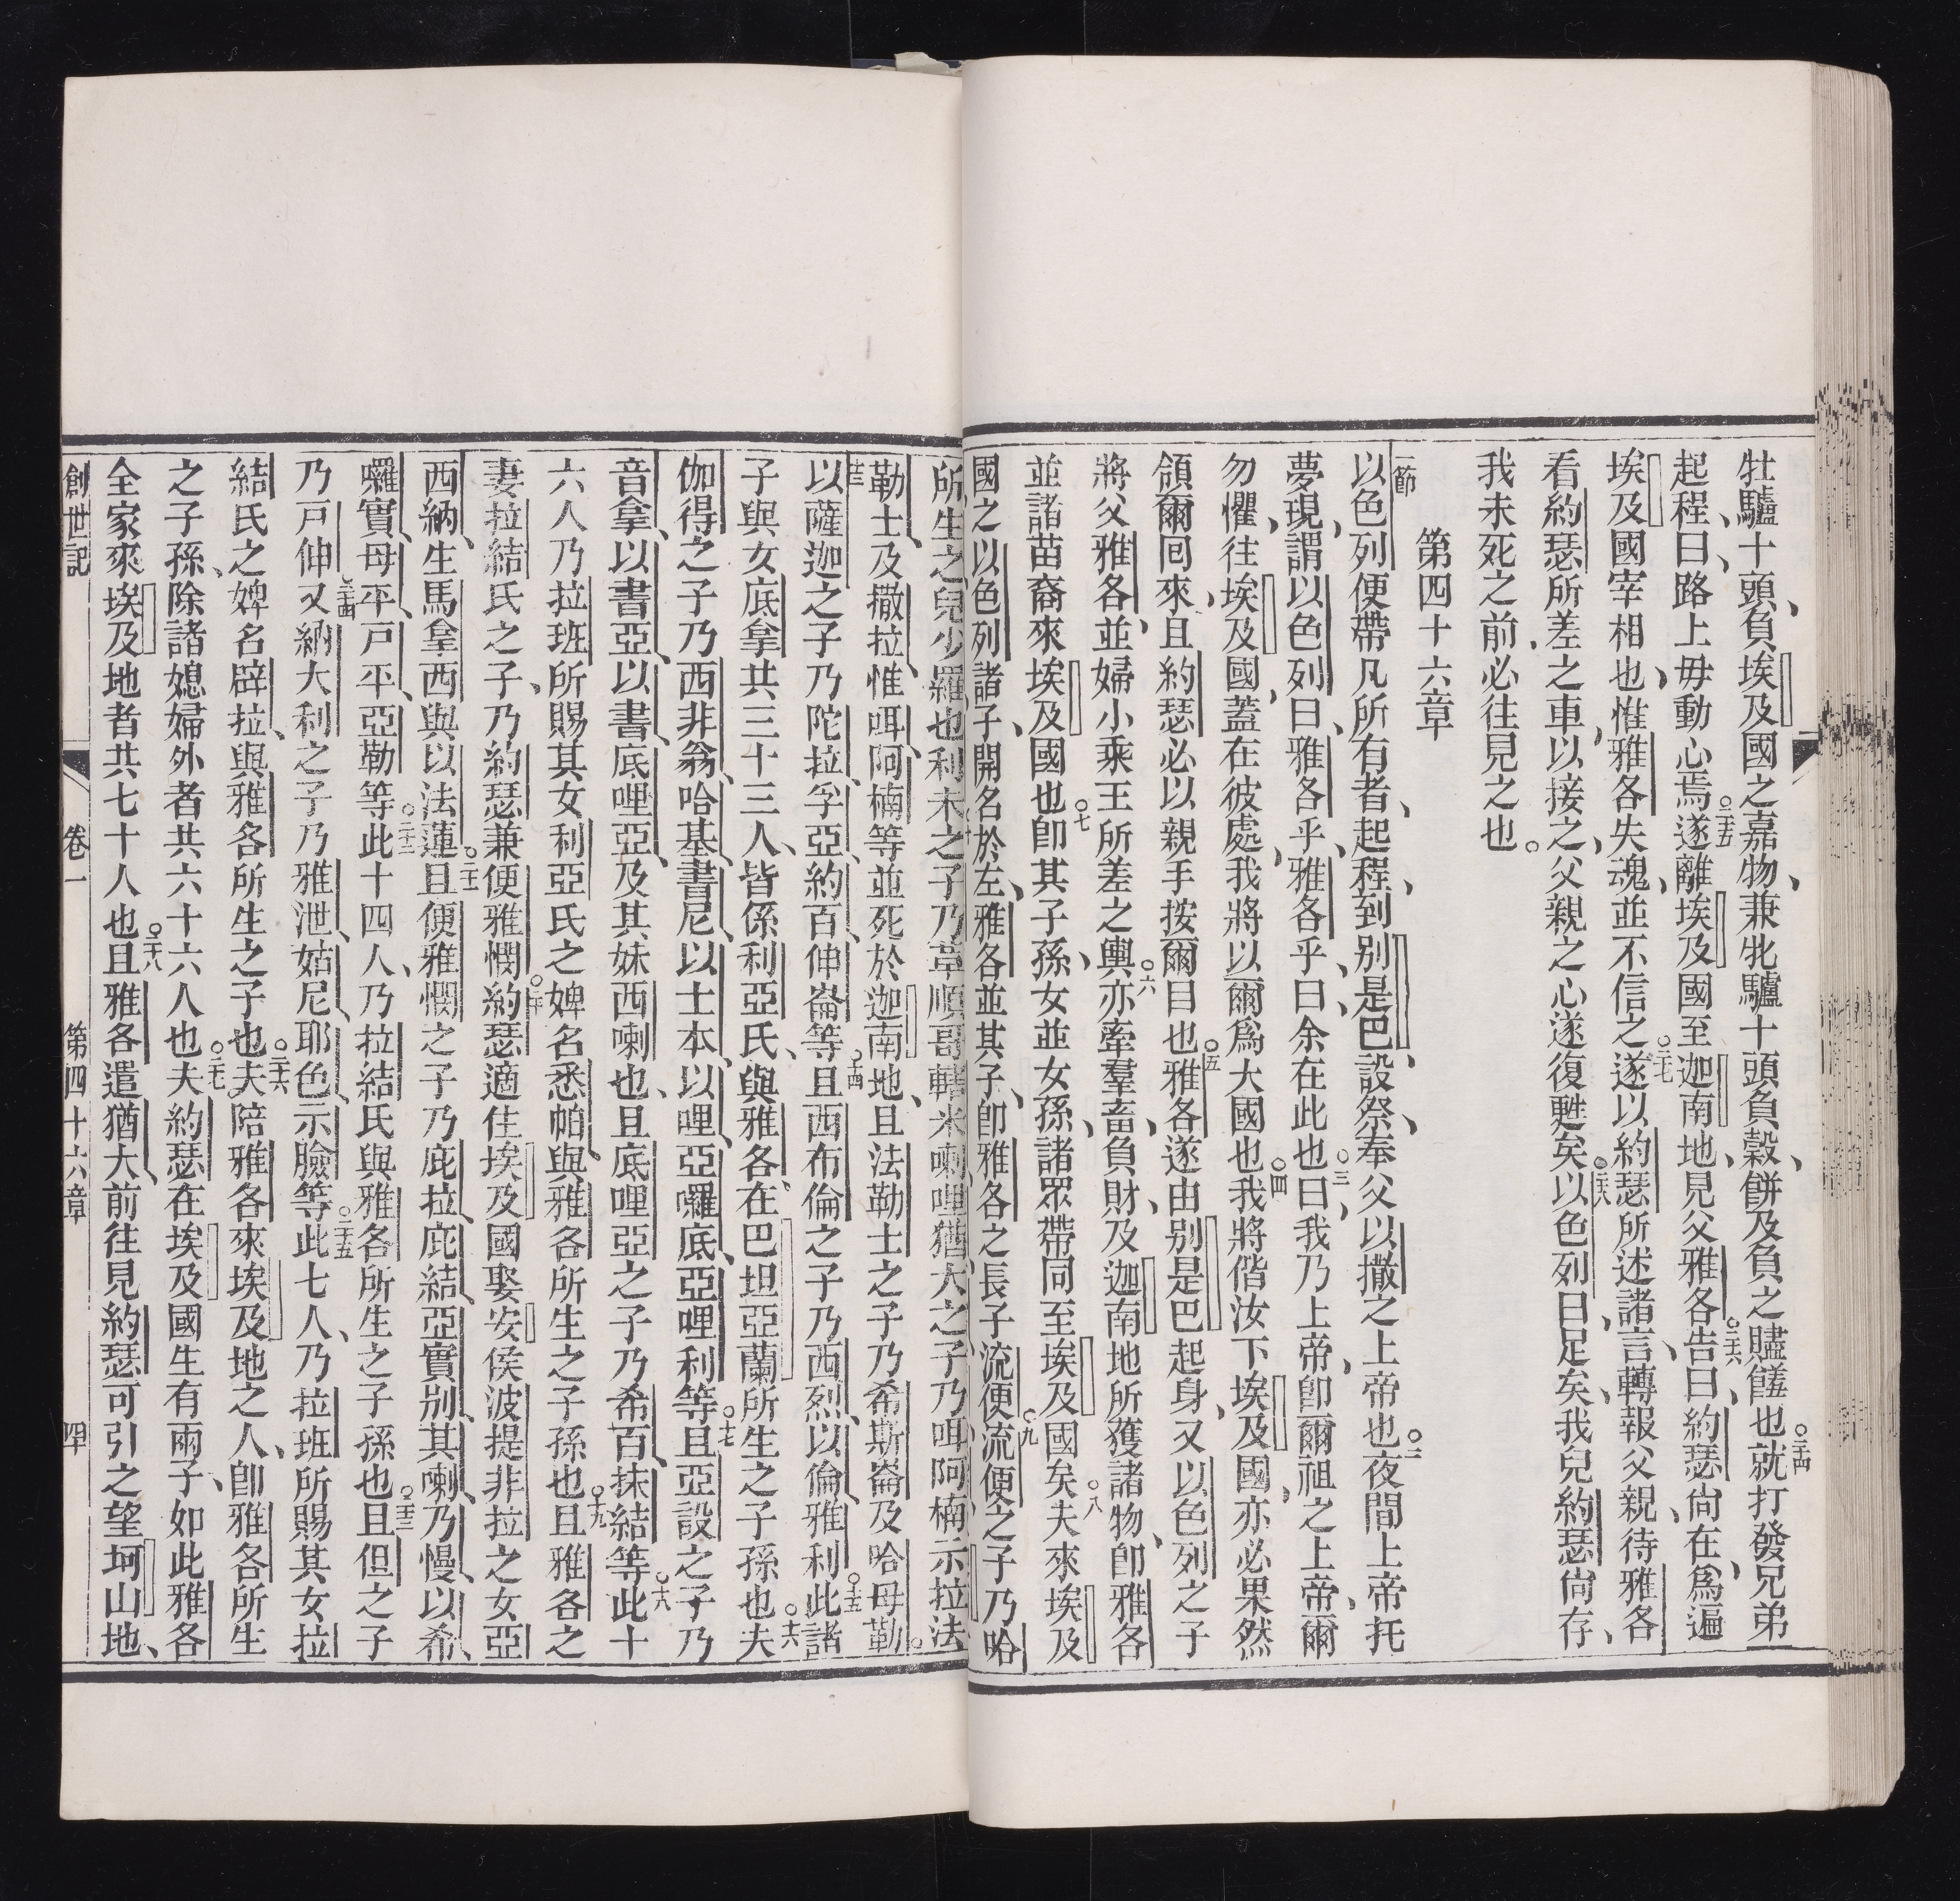 牡驢十頭、負埃及國之嘉物、兼牝驢十頭負穀、餅及負之贐饈也○二十四就打發兄弟
起程、曰、路上毋動心焉○二十五遂離埃及國至迦南地、見父雅各○二十六告曰、約瑟尙在、爲遍
埃及國宰相也、惟雅各失魂、並不信之○二十七遂以約瑟所述諸言、轉報父親、待雅各
看約瑟所差之車、以接之、父親之心遂復甦矣○二十八以色列曰、足矣、我兒約瑟尙存、
我未死之前、必往見之也。
第四十六章
一節以色列便帶凡所有者、起程、到别是巴、設祭、奉父以撒之上帝也○二夜間上帝托
夢現、謂以色列曰、雅各乎、雅各乎、曰、余在此也○三曰、我乃上帝、卽爾祖之上帝、爾
勿懼、往埃及國、蓋在彼處、我將以爾爲大國也○四我將偕汝下埃及國、亦必果然
領爾回來、且約瑟必以親手按爾目也○五雅各遂由别是巴起身、又以色列之子
將父雅各、並婦小乘王所差之輿○六亦牽羣畜、負財、及迦南地所獲諸物、卽雅各
並諸苗裔來埃及國也○七卽其子孫、女並女孫、諸眾帶同至埃及國矣○八夫來埃及
國之以色列諸子、開名於左、雅各並其子、卽雅各之長子流便○九流便之子乃哈
所生之兒少羅也利未之子乃革順哥轄米喇哩猶大之子乃咡阿楠示拉法
勒士、及撒拉、惟咡、阿楠等並死於迦南地、且法勒士之子乃希斯崙及哈母勒。
十三以薩迦之子乃陀拉、孚亞、約百、伸崙等○十四且西布倫之子乃西烈、以倫、雅利○十五此諸
子與女底拿共三十三人、皆係利亞氏、與雅各、在巴坦亞蘭所生之子孫也○十六夫
伽得之子乃西非翁、哈基、書尼、以士本、以哩、亞囉底、亞哩利等○十七且亞設之子乃
音拿、以書亞、以書、底哩亞、及其妹西喇也、且底哩亞之子乃希百、抹結等○十八此十
六人乃拉班所賜其女利亞氏之婢名悉帕、與雅各所生之子孫也○十九且雅各之
妻拉結氏之子、乃約瑟兼便雅憫○二十約瑟適住埃及國娶安侯波提非拉之女亞
西納、生馬拿西與以法蓮○二十一且便雅憫之子乃庇拉、庇結、亞實別、其喇、乃慢、以希、
囉實、母平、戸平、亞勒等○二十二此十四人、乃拉結氏與雅各所生之子孫也○二十三且但之子
乃戸伸○二十四又納大利之子乃雅泄、姑尼、耶色、示臉等○二十五此七人、乃拉班所賜其女拉
結氏之婢名辟拉、與雅各所生之子也○二十六夫陪雅各來埃及地之人、卽雅各所生
之子孫、除諸媳婦外者共六十六人也○二十七夫約瑟在埃及國生有兩子、如此雅各
全家來埃及地者共七十人也○二十八且雅各遣猶大、前往見約瑟可引之望坷山地、
創世記 卷一 第四十六章 四十